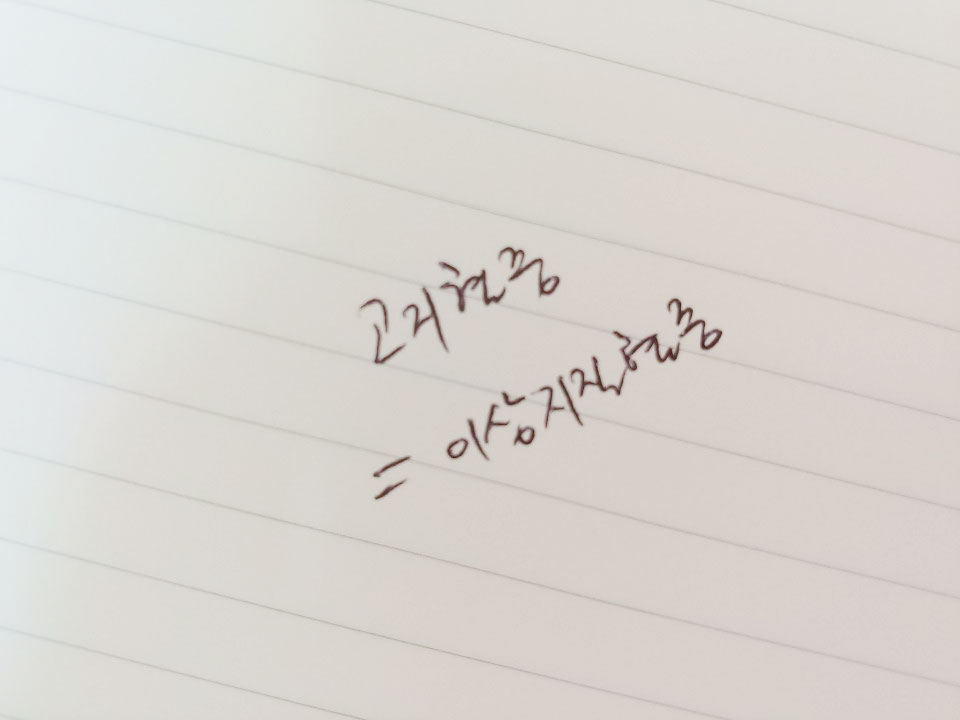 고지혈증
= 이상지질혈증